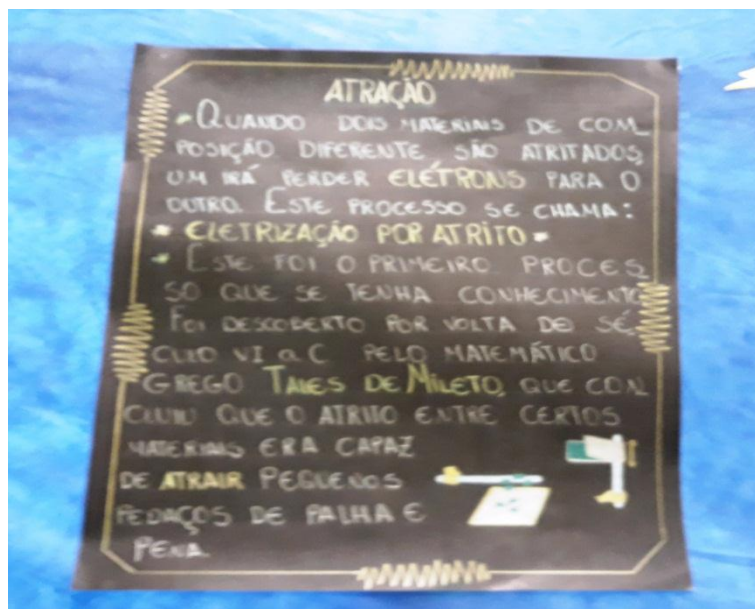 ATRAÇÃO
• QUANDO DOIS MATERIAIS DE COM
POSIÇÃO DIFERENTE SÃO ATRITADOS,
UM IRÁ PERDER ELÉTRONS PARA O
OUTRO. ESTE PROCESSO SE CHAMA:
• ELETRIZAÇÃO POR ATRITO •
• ESTE FOI O PRIMEIRO PROCES
SO QUE SE TENHA CONHECIMENTO
FOI DESCOBERTO POR VOLTA DO SÉ
CULO VI a C PELO MATEMÁTICO
GREGO TALES DE MILETO, QUE CON
CLUIU QUE O ATRITO ENTRE CERTOS
MATERIAIS ERA CAPAZ
DE ATRAIR PEQUENOS
PEDAÇOS DE PALHA E
PENA.